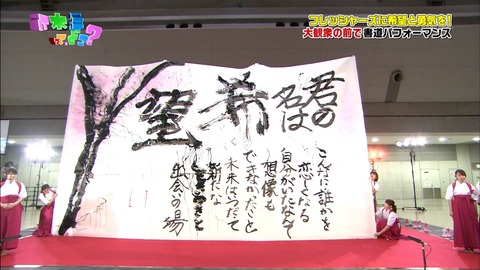 乃木坂って、どこ?
フレッシャーズに希望と勇気を!
大観衆の前で書道パフォーマンス
君の
名は
希
望
こんなに誰かを
恋しくなる
自分がいたなんて
想像も
できなかったこと
未来はいつだって
新たな
ときめきと
出会いの場